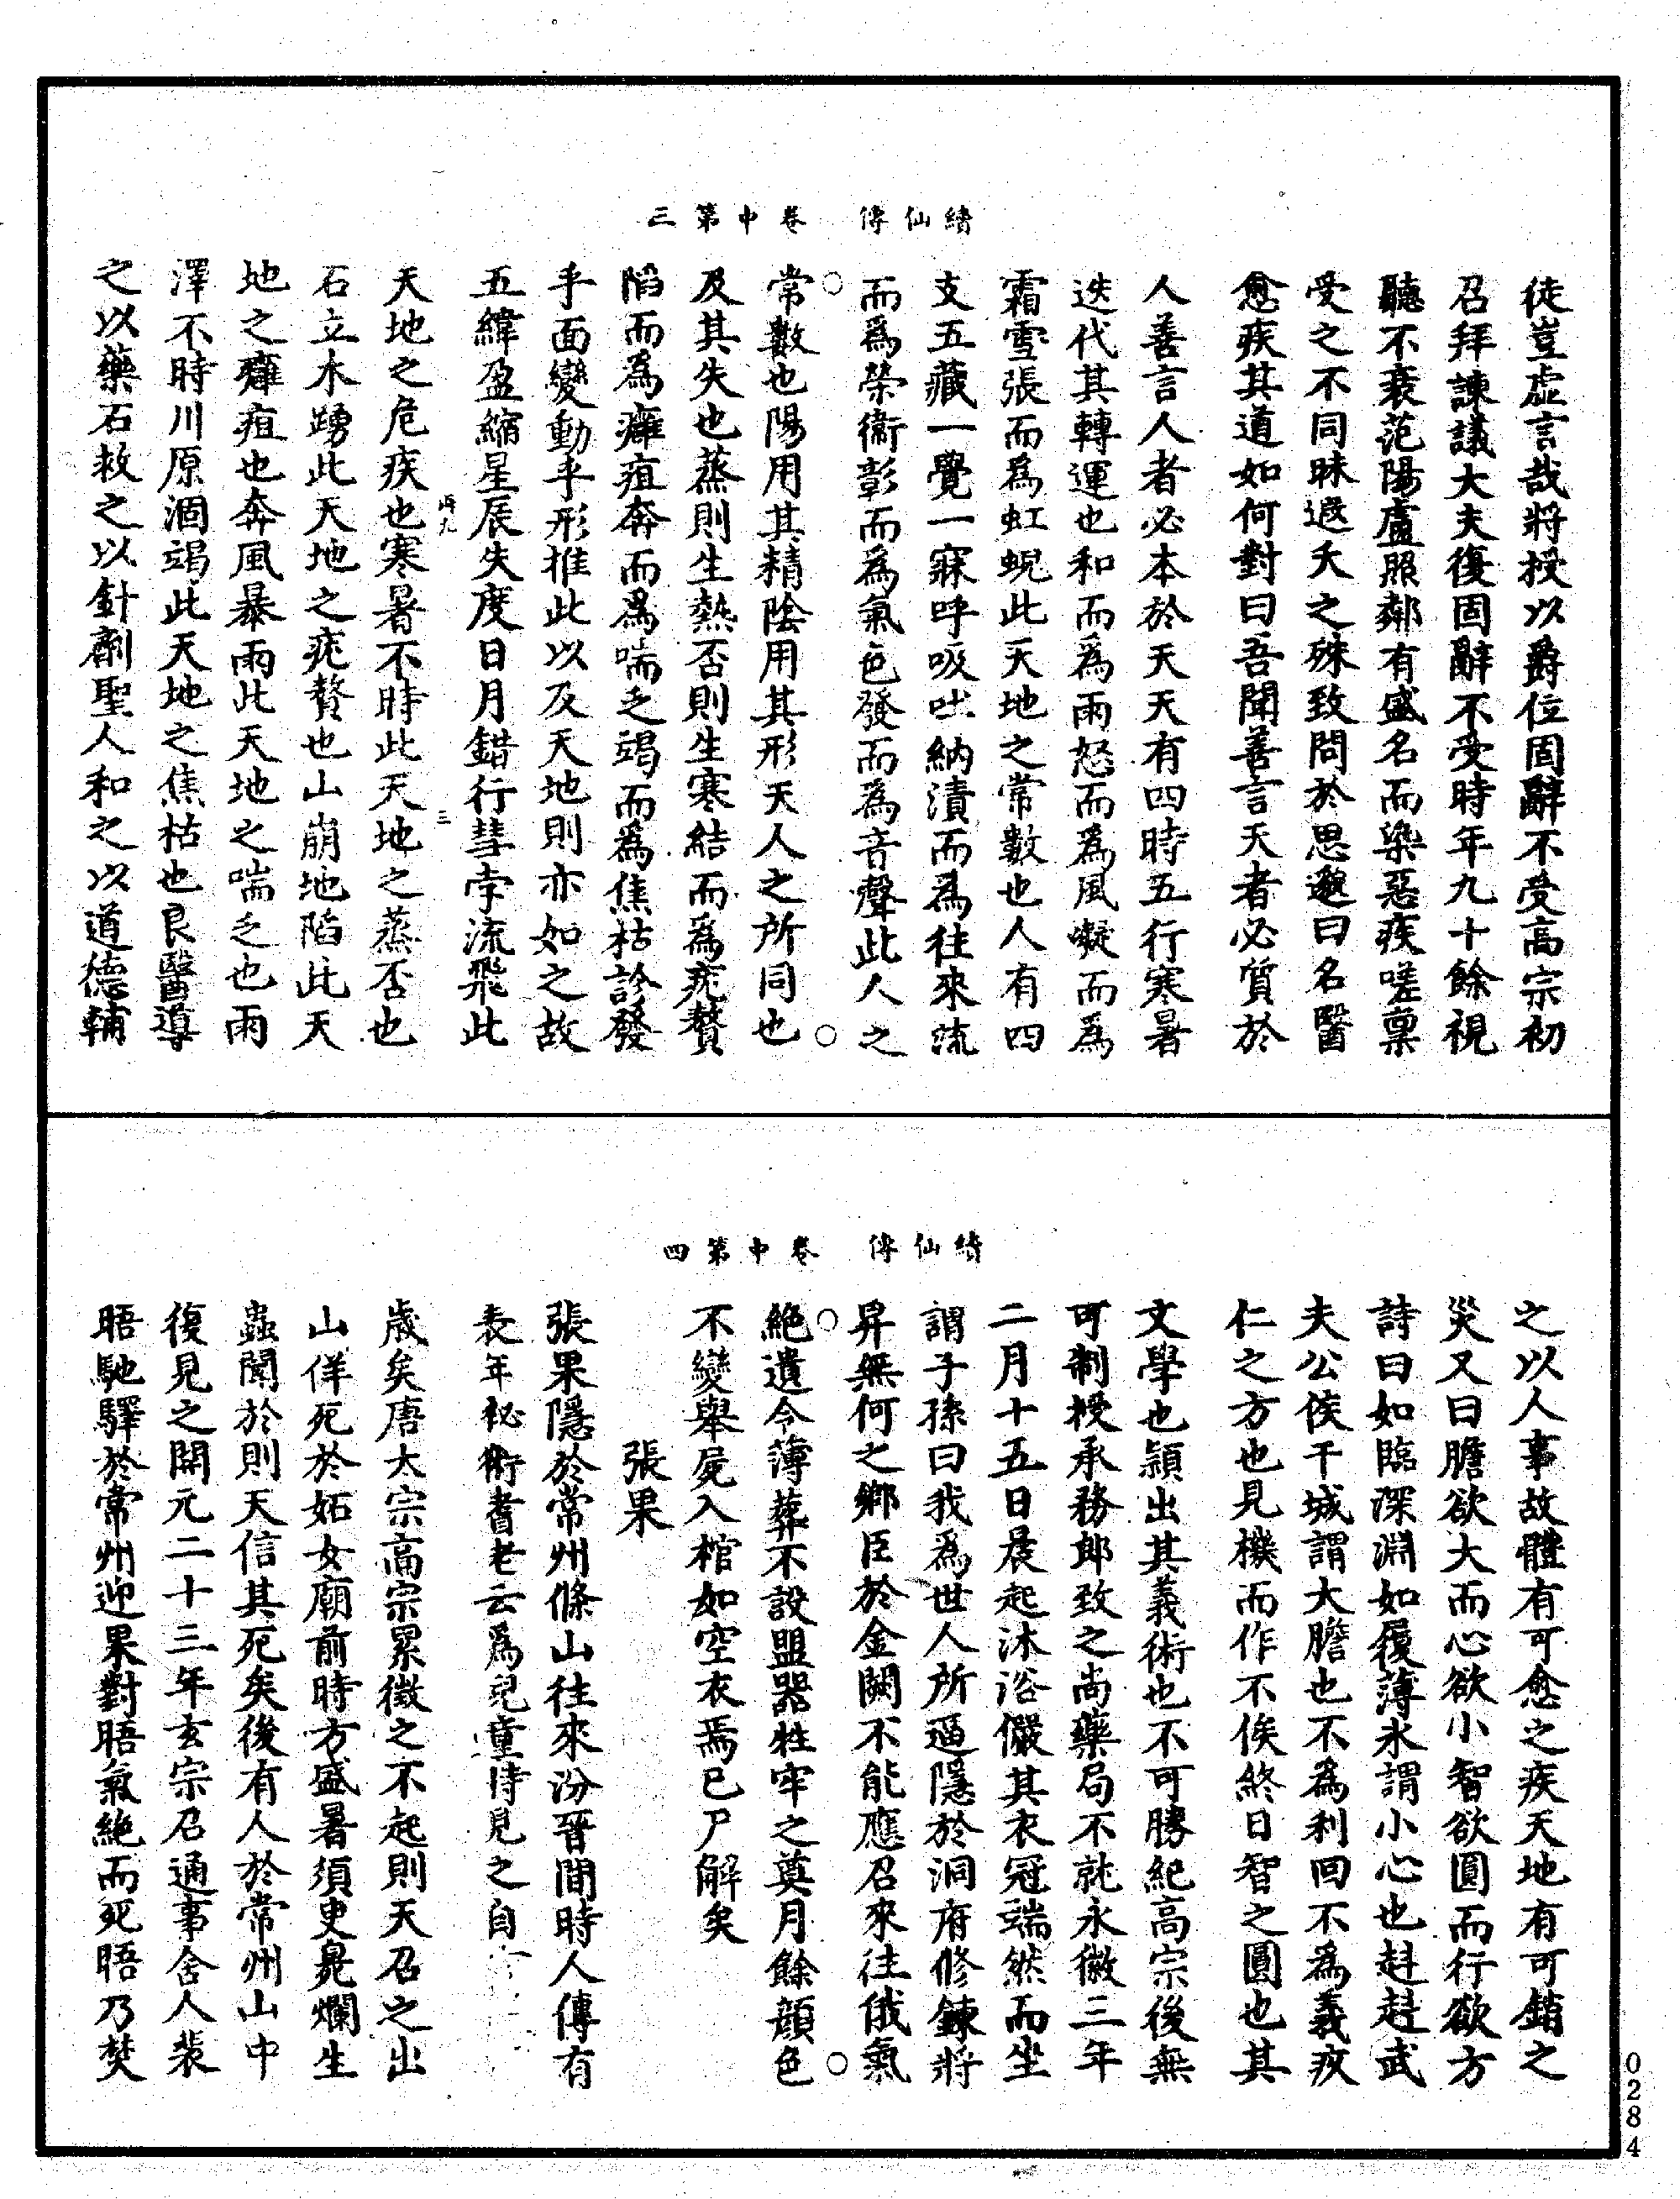 續仙傳　卷中第三
徒豈虛言哉將授以爵位固辭不受高宗初
召拜諫議大夫復固辭不受時年九十餘視
聽不衰范陽盧照鄰有盛名而染惡疾嗟稟
受之不同昧遐夭之殊致問於思邈曰名醫
愈疾其道如何對曰吾聞善言天者必質於
人善言人者必本於天天有四時五行寒暑
迭代其轉運也和而為雨怒而為風凝而為
霜雪張而為虹蜺此天地之常數也人有四
支五藏一覺一寐呼吸吐納漬而為往來流
而為榮衞彰而為氣色發而為音聲此人之
常數也陽用其精陰用其形天人之所同也
及其失也蒸則生熱否則生寒結而為疣贅
陷而為癰疽奔而為喘乏竭而為焦枯診發
乎面變動乎形推此以及天地則亦如之故
五緯盈縮星辰失度日月錯行彗孛流飛此
三
天地之危疾也寒暑不時此天地之蒸否也
石立木踴此天地之疣贅也山崩地陷此天
地之癰疽也奔風暴雨此天地之喘乏也雨
澤不時川原涸竭此天地之焦枯也良醫導
之以藥石救之以針劑聖人和之以道德輔
續仙傳　卷中第四
之以人事故體有可愈之疾天地有可銷之
災又曰膽欲大而心欲小智欲圓而行欲方
詩曰如臨深淵如履薄氷謂小心也赳赳武
夫公侯干城謂大膽也不為利回不為義疚
仁之方也見機而作不俟終日智之圓也其
文學也穎出其義術也不可勝紀高宗後無
可制授承務郎致之尚藥局不就永徽三年
二月十五日晨起沐浴儼其衣冠端然而坐
謂子孫曰我為世人所逼隱於洞府修鍊將
昇無何之鄉臣於金闕不能應召來往俄氣
絕遺令薄葬不設盟器牲牢之奠月餘顔色
不變舉屍入棺如空衣焉已尸解矣
張果
張果隱於常州條山往來汾晉間時人傳有
長年祕術耆老云為兒童時見之自
歲矣唐太宗高宗累徵之不起則天召之出
山佯死於妬女廟前時方盛暑須臾臭爛生
蟲聞於則天信其死矣後有人於常州山中
復見之開元二十三年玄宗召通事舍人裴
晤馳驛於常州迎果對晤氣絕而死晤乃焚
0284